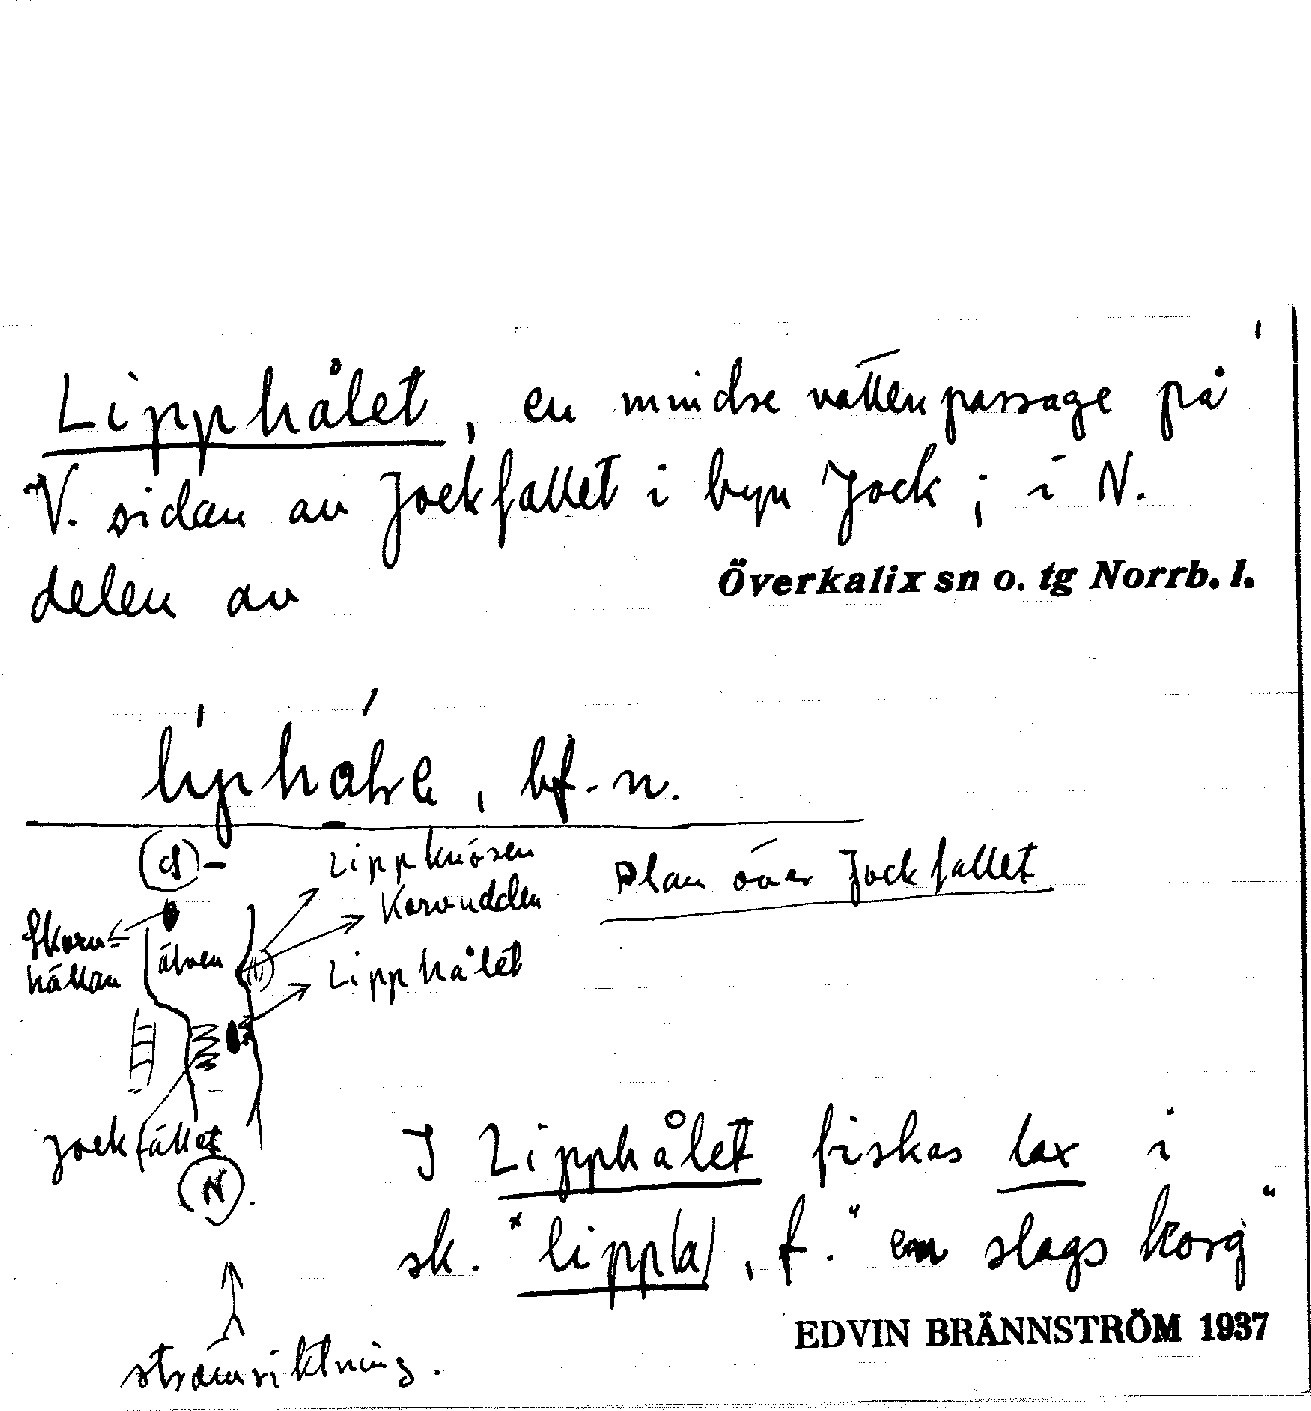 Lipphålet, en mindre vattenpassage på
V. sidan av Jockfallet i byn Jock; i N.
delen av
Överkalix sn o. tg Norrb. l.
bf. n.
S
Lippknösen
Plan över Jockfallet
Korvudden
älven
hällan
Lipphålet
Jockfallet
N
I Lipphålet fiskas lax i
sk. "lipp(a), f." en slags korg"
EDVIN BRÄNNSTRÖM 1937
strömriktning.